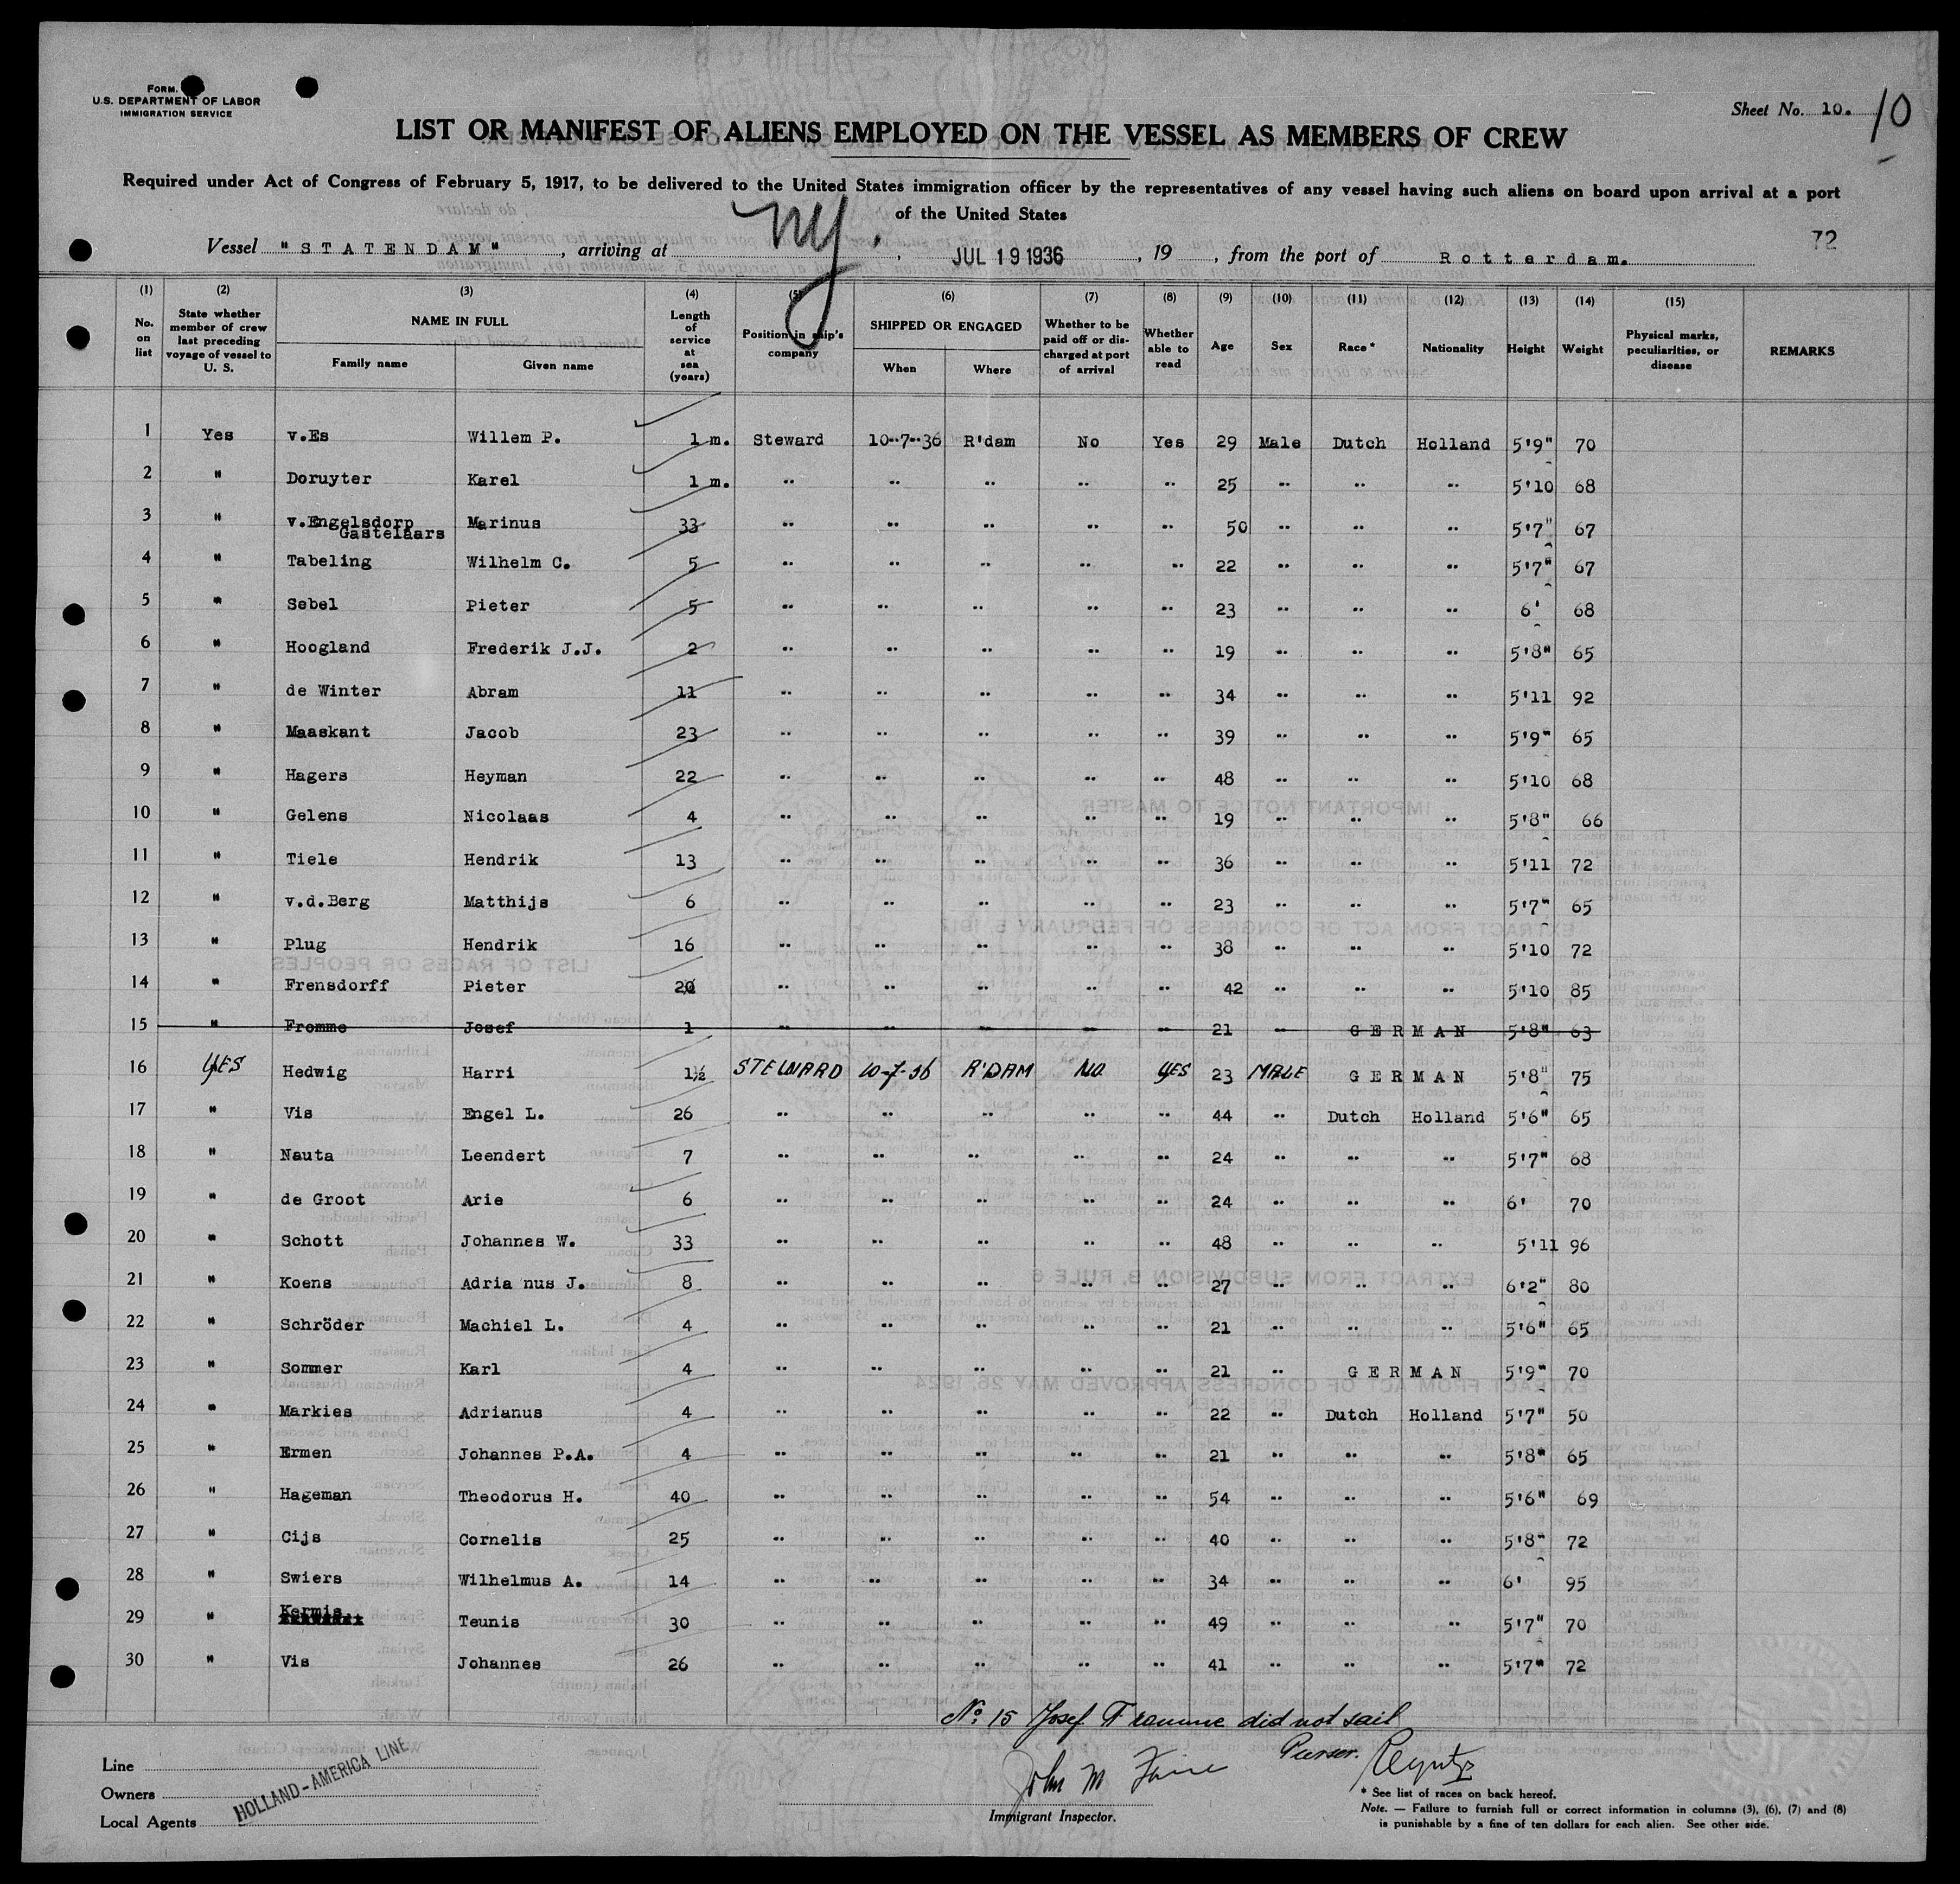 FORM.
U.S. DEPARTMENT OF LABOR
IMMIGRATION SERVICE
Sheet No. 10. 10
LIST OR MANIFEST OF ALIENS EMPLOYED ON THE VESSEL AS MEMBERS OF CREW
Required under Act of Congress of February 5, 1917, to be delivered to the United States immigration officer by the representatives of any vessel having such aliens on board upon arrival at a port
of the United States
72
Vessel "STATENDAM", arriving at NY., JUL 19 1936, 19 , from the port of Rotterdam.
(1) No. on list (2) State whether member of crew last preceding voyage of vessel to U. S. (3) NAME IN FULL Family name Given name (4) Length of service at sea (years) (5) Position in ship's company (6) SHIPPED OR ENGAGED When Where (7) Whether to be paid off or discharged at port of arrival (8) Whether able to read (9) Age (10) Sex (11) Race* (12) Nationality (13) Height (14) Weight (15) Physical marks, peculiarities, or disease REMARKS
1 Yes v.Es Willem P. 1 m. Steward 10-7-36 R'dam No Yes 29 Male Dutch Holland 5'9" 70
2 " Doruyter Karel 1 m. " " " " " 25 " " " 5'10 68
3 " v.Engelsdorp Gastelaars Marinus 33 " " " " " 50 " " " 5'7" 67
4 " Tabeling Wilhelm C. 5 " " " " " 22 " " " 5'7" 67
5 " Sebel Pieter 5 " " " " " 23 " " " 6' 68
6 " Hoogland Frederik J.J. 2 " " " " " 19 " " " 5'8" 65
7 " de Winter Abram 11 " " " " " 34 " " " 5'11 92
8 " Maaskant Jacob 23 " " " " " 39 " " " 5'9" 65
9 " Hagers Heyman 22 " " " " " 48 " " " 5'10 68
10 " Gelens Nicolaas 4 " " " " " 19 " " " 5'8" 66
11 " Tiele Hendrik 13 " " " " " 36 " " " 5'11 72
12 " v.d.Berg Matthijs 6 " " " " " 23 " " " 5'7" 65
13 " Plug Hendrik 16 " " " " " 38 " " " 5'10 72
14 " Frensdorff Pieter 20 " " " " " 42 " " " 5'10 85
15 " Fromme Josef 1 " " " " " 21 " GERMAN 5'8" 63
16 YES Hedwig Harri 1½ STEWARD 10-7-36 R'DAM No YES 23 MALE GERMAN 5'8" 75
17 " Vis Engel L. 26 " " " " " 44 " Dutch Holland 5'6" 65
18 " Nauta Leendert 7 " " " " " 24 " " " 5'7" 68
19 " de Groot Arie 6 " " " " " 24 " " " 6' 70
20 " Schott Johannes W. 33 " " " " " 48 " " " 5'11 96
21 " Koens Adria nus J. 8 " " " " " 27 " " " 6'2" 80
22 " Schröder Machiel L. 4 " " " " " 21 " " " 5'6" 65
23 " Sommer Karl 4 " " " " " 21 " GERMAN 5'9" 70
24 " Markies Adrianus 4 " " " " " 22 " Dutch Holland 5'7" 50
25 " Ermen Johannes P.A. 4 " " " " " 21 " " " 5'8" 65
26 " Hageman Theodorus H. 40 " " " " " 54 " " " 5'6" 69
27 " Cijs Cornelis 25 " " " " " 40 " " " 5'8" 72
28 " Swiers Wilhelmus A. 14 " " " " " 34 " " " 6' 95
29 " Kermis Teunis 30 " " " " " 49 " " " 5'7" 70
30 " Vis Johannes 26 " " " " " 41 " " " 5'7" 72
No. 15 Josef Fromme did not sail
Purser.
Line
Owners
Local Agents
HOLLAND-AMERICA LINE
John M
Immigrant Inspector.
* See list of races on back hereof.
Note. — Failure to furnish full or correct information in columns (3), (6), (7) and (8)
is punishable by a fine of ten dollars for each alien. See other side.